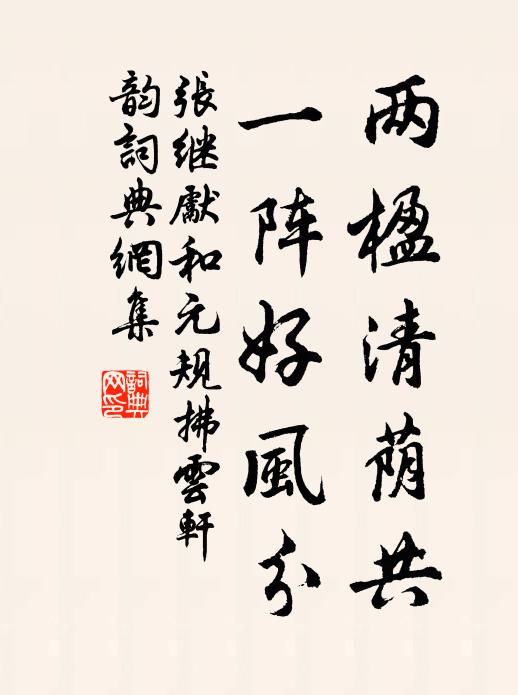 两楹清荫共
一阵好風分
張继獻和元规拂雲軒
韵詞典網集
詞典
网印